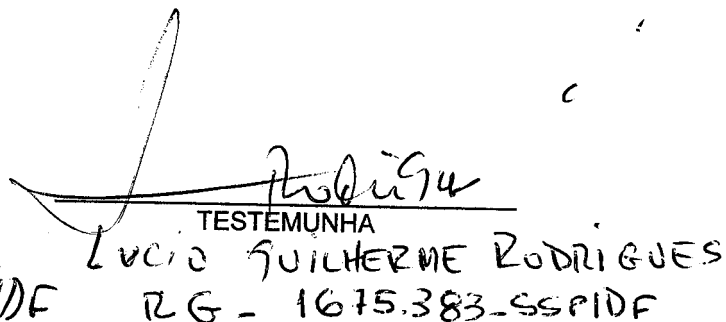 Rodrigues
TESTEMUNHA
LUCIO GUILHERME RODRIGUES
/DF RG - 1675.383-SSP/DF